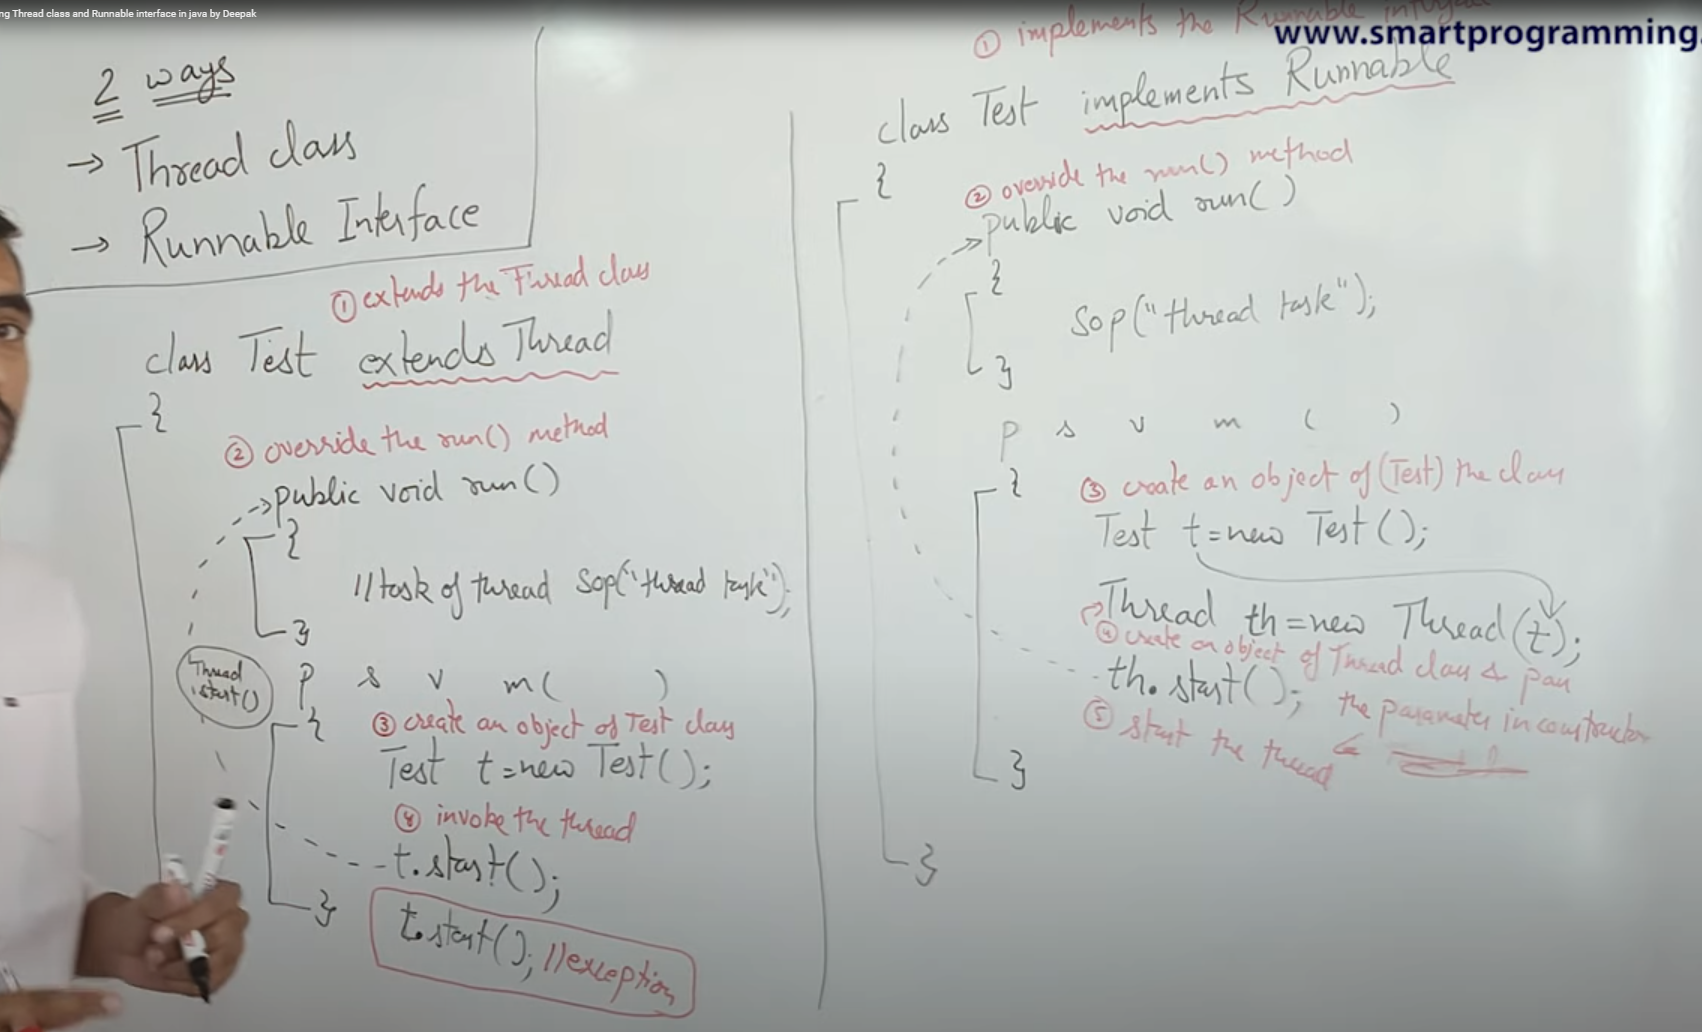 ng Thread class and Runnable interface in java by Deepak
www.smartprogramming.
2 ways
→ Thread class
→ Runnable Interface
① extends the Thread class
class Test extends Thread
{
② override the run() method
public void run()
{
//task of thread Sop("thread task");
}
Thread
.start()
p s v m ( )
{
③ create an object of Test class
Test t=new Test();
④ invoke the thread
t.start();
}
t.start(); //exception
① implements the Runnable
class Test implements Runnable
{
② override the run() method
public void run()
{
Sop("thread task");
}
p s v m ( )
{
③ create an object of (Test) the class
Test t=new Test();
Thread th=new Thread(t);
④ create an object of Thread class & pass
the parameter in constructor
th.start();
⑤ start the thread
}
}